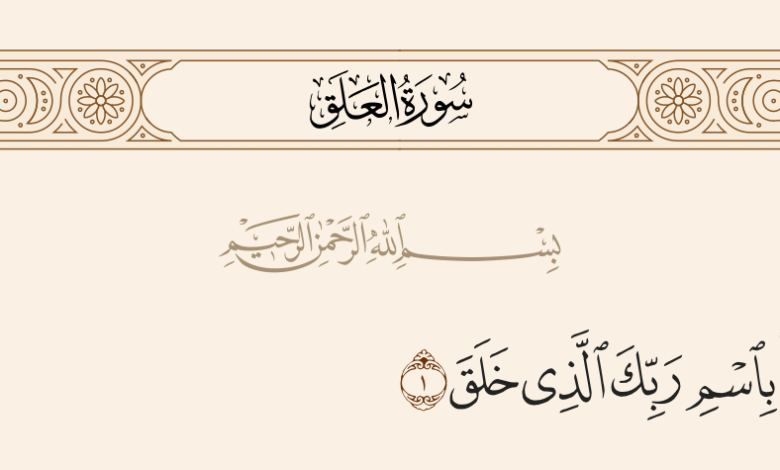 سُورَةُ العَلَقِ
بِسْمِ ٱللَّهِ ٱلرَّحْمَٰنِ ٱلرَّحِيمِ
بِٱسْمِ رَبِّكَ ٱلَّذِى خَلَقَ ١